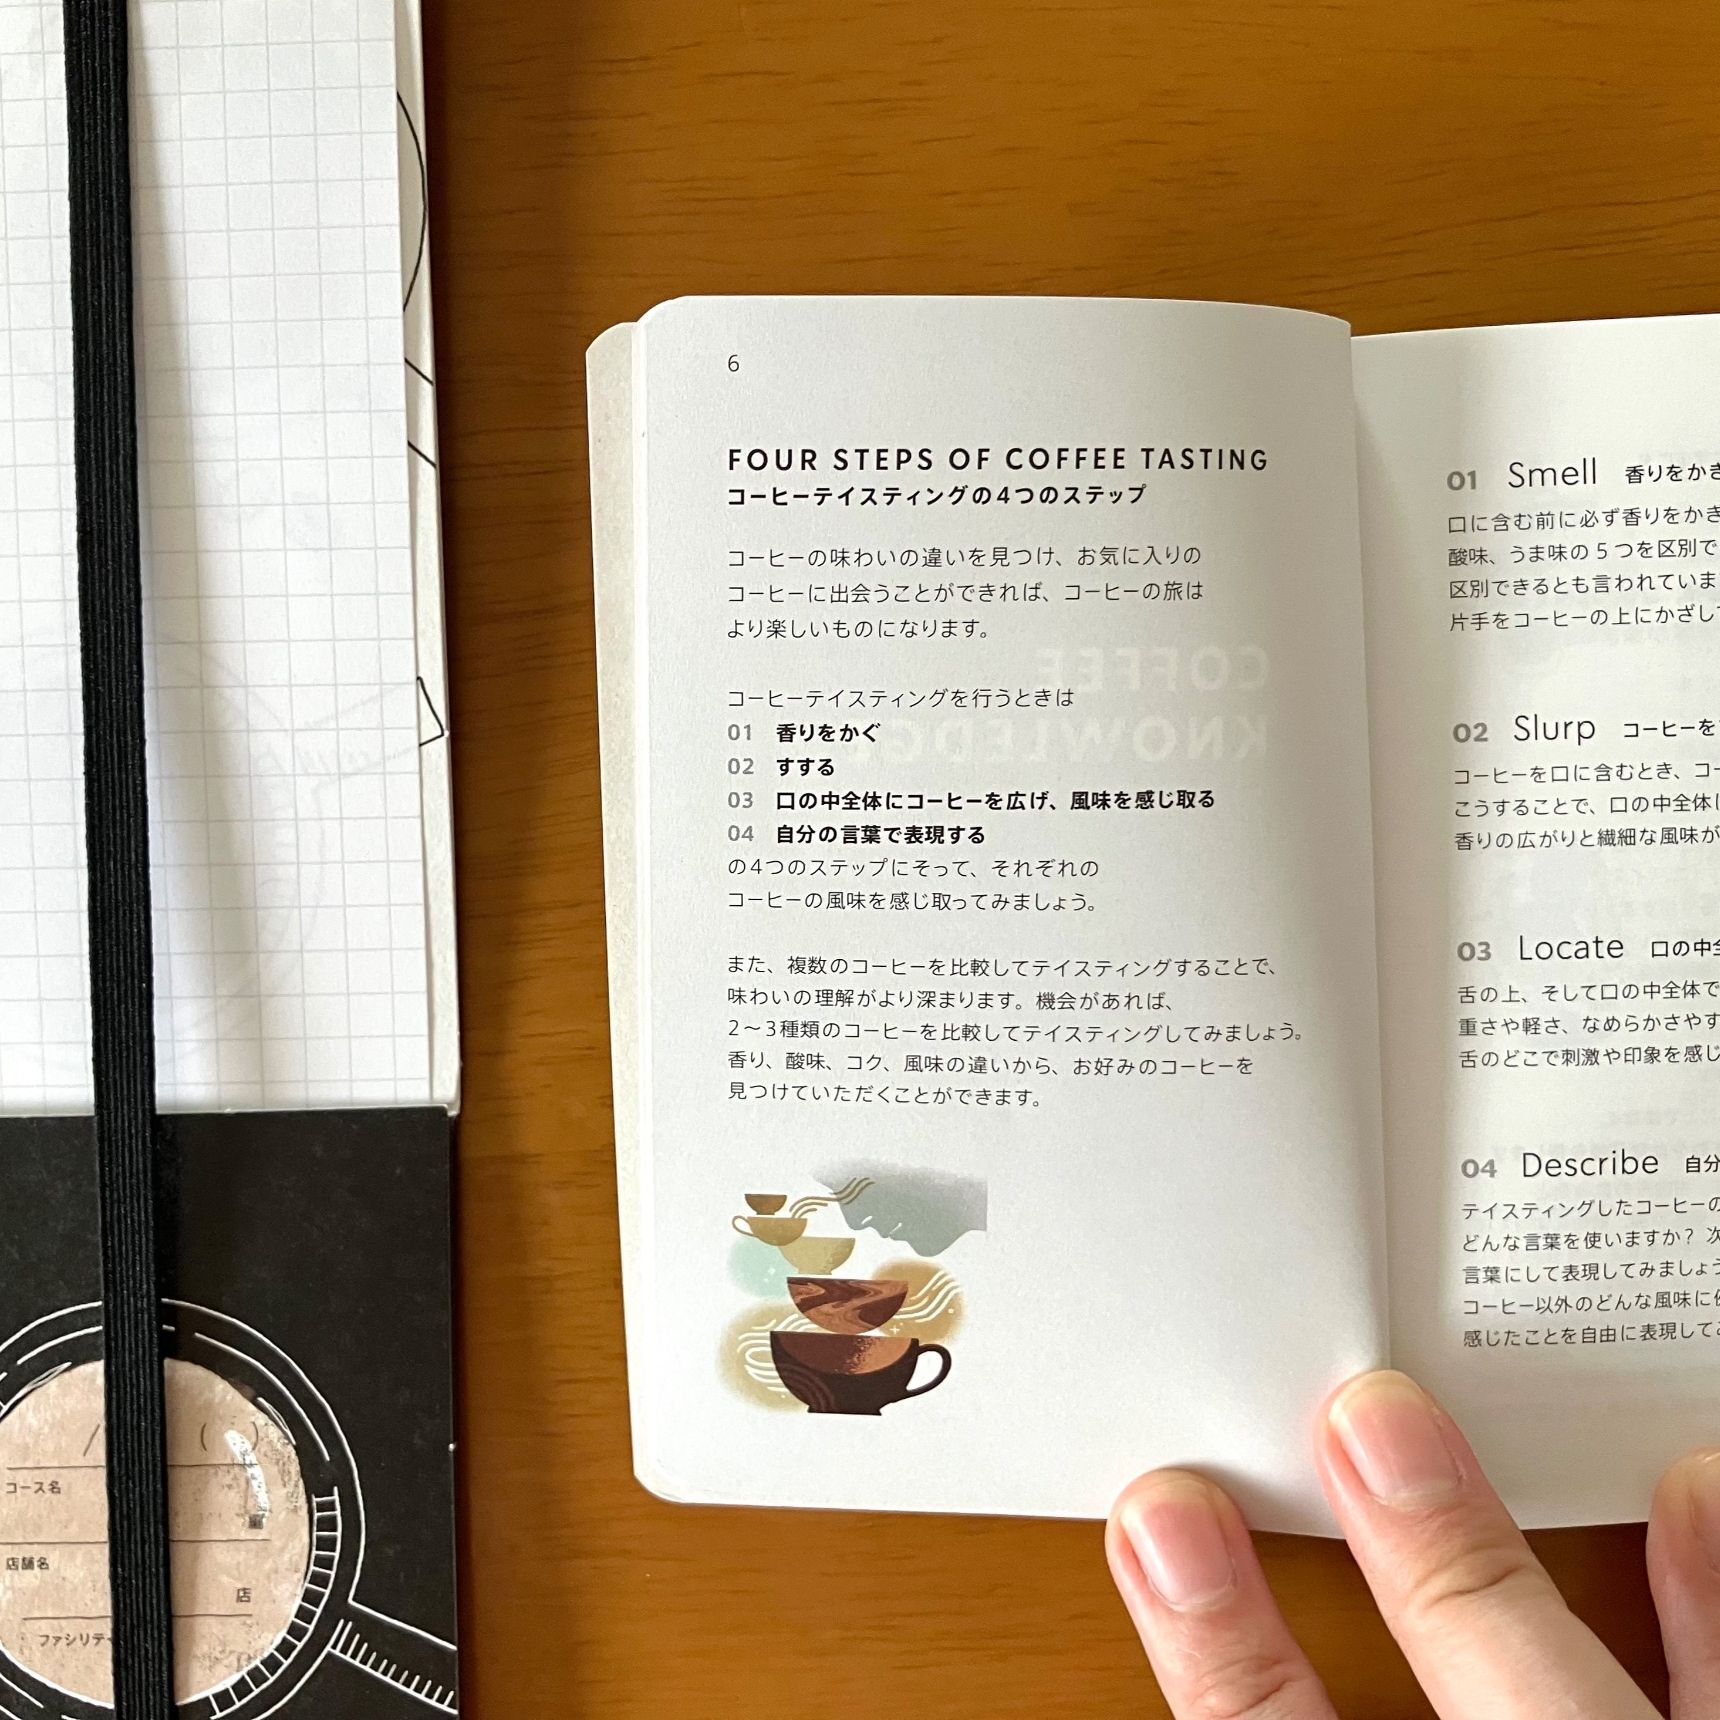 6
FOUR STEPS OF COFFEE TASTING
コーヒーテイスティングの4つのステップ
コーヒーの味わいの違いを見つけ、お気に入りの
コーヒーに出会うことができれば、コーヒーの旅は
より楽しいものになります。
コーヒーテイスティングを行うときは
01 香りをかぐ
02 すする
03 口の中全体にコーヒーを広げ、風味を感じ取る
04 自分の言葉で表現する
の4つのステップにそって、それぞれの
コーヒーの風味を感じ取ってみましょう。
また、複数のコーヒーを比較してテイスティングすることで、
味わいの理解がより深まります。機会があれば、
2〜3種類のコーヒーを比較してテイスティングしてみましょう。
香り、酸味、コク、風味の違いから、お好みのコーヒーを
見つけていただくことができます。
COFFEE
KNOWLEDGE
01 Smell 香りをかぎ
口に含む前に必ず香りをかぎ
酸味、うま味の5つを区別で
区別できるとも言われていま
片手をコーヒーの上にかざして
02 Slurp コーヒーを
コーヒーを口に含むとき、コー
こうすることで、口の中全体に
香りの広がりと繊細な風味が
03 Locate 口の中全
舌の上、そして口の中全体で
重さや軽さ、なめらかさやす
舌のどこで刺激や印象を感じ
04 Describe 自分
テイスティングしたコーヒーの
どんな言葉を使いますか？ 次
言葉にして表現してみましょう
コーヒー以外のどんな風味に
感じたことを自由に表現して
/ ( )
コース名
店舗名
店
ファシリテ